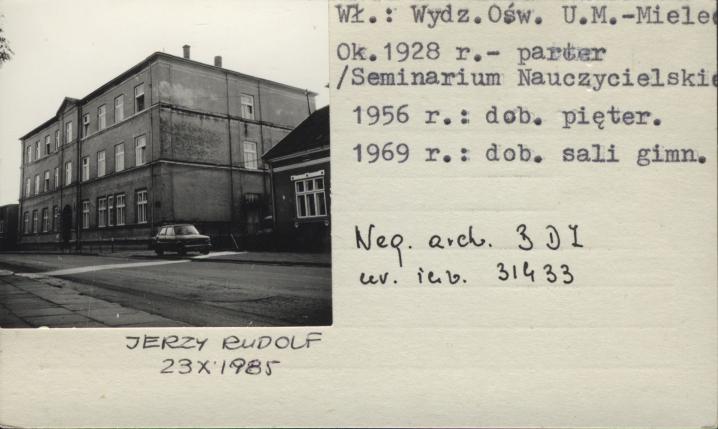 Wł.: Wydz.Ośw. U.M.-Mielec
Ok.1928 r.- parter
/Seminarium Nauczycielskie
1956 r.: dob. pięter.
1969 r.: dob. sali gimn.
Neg. arch. BDZ
nr. inw. 31433
JERZY RUDOLF
23 X 1985